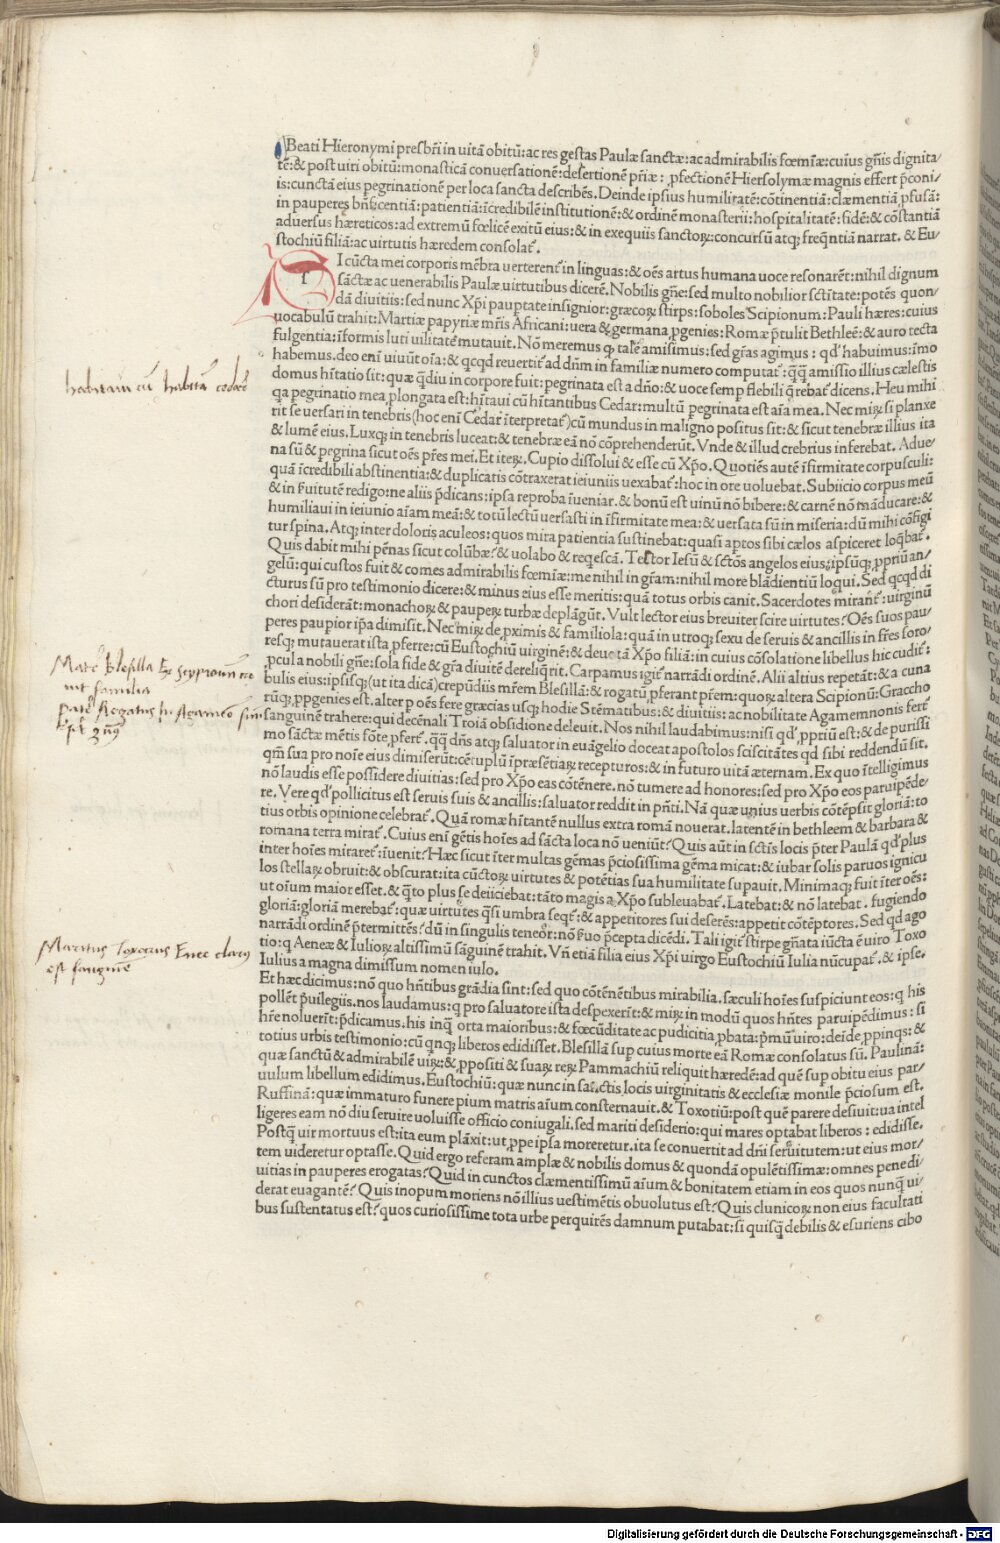 Beati Hieronymi presbr̄i in uitā obitū: ac res gestas Paulæ sanctæ: ac admirabilis fœmīæ: cuius gn̄is dignita/
tē: & post uiri obitū: monasticā conuersationē: desertionē pr̄iæ: ꝓfectionē Hiersolymæ magnis effert p̄coni/
is: cunctā eius pegrinationē per loca sancta describēs. Deinde ipsius humilitatē: cōtinentiā: clæmentiā pfusā:
in pauperes bn̄ficentiā: patientiā: īcredibilē institutionē: & ordinē monasterii: hospitalitatē: fidē: & cōstantiā
aduersus hæreticos: ad extremū fœlicē exitū eius: & in exequiis sanctoꝝ: concursū atqꝫ freq̄ntiā narrat. & Eu/
stochiū filiā: ac virtutis hæredem consolat̄.
SI cūcta mei corporis mēbra uerterent̄ in linguas: & oēs artus humana uoce resonarēt: nihil dignum
sāctæ ac uenerabilis Paulæ uirtutibus dicerē. Nobilis gn̄e: sed multo nobilior sctītate: potēs quon/
dā diuitiis: sed nunc Xp̄i pauptate insignior: græcoꝝ stirps: soboles Scipionum: Pauli hæres: cuius
uocabulū trahit: Martiæ papyriæ mr̄is Africani: uera & germana ꝓgenies: Romæ p̄tulit Bethleē: & auro tecta
fulgentia: īformis luti uilitatē mutauit. Nō meremus ꝙ talē amisimus: sed gr̄as agimus: qd' habuimus: īmo
habemus. deo enī uiuūt oīa: & qcqd reuertit̄ ad dn̄m in familiæ numero computat̄: q̄q̄ amissio illius cælestis
domus hītatio sit: quæ q̄diu in corpore fuit: pegrinata est a dn̄o: & uoce semp flebili q̄rebat̄ dicens. Heu mihi
qa pegrinatio mea ꝓlongata est: hītaui cū hītantibus Cedar: multū pegrinata est aīa mea. Nec miꝝ si planxe
rit se uersari in tenebris (hoc enī Cedar īterpretat̄) cū mundus in maligno positus sit: & sicut tenebræ illius ita
& lumē eius. Luxqꝫ in tenebris luceat: & tenebræ eā nō cōprehenderūt. Vnde & illud crebrius inferebat. Adue/
na sū & pegrina sicut oēs pr̄es mei. Et iteꝝ. Cupio dissolui & esse cū Xp̄o. Quotiēs autē īfirmitate corpusculi:
quā īcredibili abstinentia: & duplicatis cōtraxerat ieiuniis uexabat̄: hoc in ore uoluebat. Subiicio corpus meū
& in ẜuitutē redigo: ne aliis p̄dicans: ipsa reproba īueniar. & bonū est uinū nō bibere: & carnē nō māducare: &
humiliaui in ieiunio aīam meā: & totū lectū uersasti in īfirmitate mea: & uersata sū in miseria: dū mihi cōfigi
tur spina. Atqꝫ inter doloris aculeos: quos mira patientia sustinebat: quasi aptos sibi cælos aspiceret loq̄bat̄.
Quis dabit mihi pēnas sicut colūbæ? & uolabo & reqescā. Testor Iesū & sctōs angelos eius: ipsūqꝫ ꝓpriū an/
gelū: qui custos fuit & comes admirabilis fœmīæ: me nihil in gr̄am: nihil more blādientiū loqui. Sed qcqd di
cturus sū pro testimonio dicere: & minus eius esse meritis: quā totus orbis canit. Sacerdotes mirant̄: uirginū
chori desiderāt: monachoꝝ & pauperꝝ turbæ deplāgūt. Vult lector eius breuiter scire uirtutes? Oēs suos pau/
peres paupior ip̄a dimisit. Nec miꝝ de pximis & familiola: quā in utroqꝫ sexu de seruis & ancillis in fr̄es soro/
resqꝫ mutauerat ista pferre: cū Eustochiū uirginē: & deuotā Xp̄o filiā: in cuius cōsolatione libellus hic cudit̄:
pcul a nobili gn̄e: sola fide & gr̄a diuitē dereliq̄rit. Carpamus igit̄ narrādi ordinē. Alii altius repetāt: & a cuna
bulis eius: ipsisqꝫ (ut ita dicā) crepūdiis mr̄em Blesillā: & rogatū pferant pr̄em: quoꝝ altera Scipionū: Graccho
rūqꝫ ꝓpgenies est. alter p oēs fere græcias usqꝫ hodie Stēmatibus: & diuitiis: ac nobilitate Agamemnonis fert̄
sanguinē trahere: qui decēnali Troiā obsidione deleuit. Nos nihil laudabimus: nisi qd' ꝓpriū est: & de purissi
mo sāctæ mētis fōte pfert̄. q̄q̄ dn̄s atqꝫ saluator in euāgelio doceat apostolos sciscitātes qd sibi reddendū sit.
qm̄ sua pro noīe eius dimiserūt: cētuplū īpræsētiaꝝ recepturos: & in futuro uitā æternam. Ex quo ītelligimus
nō laudis esse possidere diuitias: sed pro Xp̄o eas cōtēnere. nō tumere ad honores: sed pro Xp̄o eos paruipēde/
re. Vere qd' pollicitus est seruis suis & ancillis: saluator reddit in pn̄ti. Nā quæ unius uerbis cōtēpsit gloriā: to
tius orbis opinione celebrat̄. Quā romæ hītantē nullus extra romā nouerat. latentē in bethleem & barbara &
romana terra mirat̄. Cuius enī gētis hoīes ad sācta loca nō ueniūt? Quis aūt in sctīs locis p̄ter Paulā qd' plus
inter hoīes miraret̄: īuenit? Hæc sicut īter multas gēmas p̄ciosissima gēma micat: & iubar solis paruos ignicu
los stellaꝝ obruit: & obscurat: ita cūctoꝝ uirtutes & potētias sua humilitate supauit. Minimaqꝫ fuit īter oēs:
ut oīum maior esset. & q̄to plus se deiiciebat: tāto magis a Xp̄o subleuabat̄. Latebat: & nō latebat. fugiendo
gloriā: gloriā merebat̄: quæ uirtūtes q̄si umbra seqt̄: & appetitores sui deserēs: appetit cōtēptores. Sed qd ago
narrādi ordinē p̄termittēs? dū in singulis teneor: nō ẜuo p̄cepta dicēdi. Tali igit̄ stirpe gn̄ata iūcta ē uiro Toxo
tio: q Aeneæ & Iulioꝝ altissimū sāguinē trahit. Vn̄ etiā filia eius Xp̄i uirgo Eustochiū Iulia nūcupat̄. & ipse.
Iulius a magna dimissum nomen iulo.
Et hæc dicimus: nō quo hn̄tibus grādia sint: sed quo cōtēnētibus mirabilia. sæculi hoīes suspiciunt eos: q his
pollēt p̄uilegiis. nos laudamus: q pro saluatore ista despexerīt: & miꝝ in modū quos hn̄tes paruipēdimus: si
hr̄e noluerīt: p̄dicamus. his inq̄ orta maioribus: & fœcūditate ac pudicitia ꝓbata: p̄mū uiro: deīde ꝓpinqs: &
totius urbis testimonio: cū qnqꝫ liberos edidisset. Blesillā sup cuius morte eā Romæ consolatus sū. Paulinā:
quæ sanctū & admirabilē uiꝝ: & ꝓpositi & suaꝝ reꝝ Pammachiū reliquit hærede: ad quē sup obitu eius par/
uulum libellum edidimus. Eustochiū: quæ nunc in sanctis locis uirginitatis & ecclesiæ monile p̄ciosum est.
Ruffinā: quæ immaturo funere pium matris aīum consternauit. & Toxotiū: post quē parere desiuit: ua intel
ligeres eam nō diu seruire uoluisse officio coniugali. sed mariti desiderio: qui mares optabat liberos: edidisse.
Postq̄ uir mortuus est: ita eum plāxit: ut ꝓpe ipsa moreretur. ita se conuertit ad dn̄i seruitutem: ut eius mor/
tem uideretur optasse. Quid ergo referam amplæ & nobilis domus & quondā opulētissimæ: omnes pene di/
uitias in pauperes erogatas? Quid in cunctos clæmentissimū aīum & bonitatem etiam in eos quos nunq̄ ui/
derat euagantē? Quis inopum moriens nō illius uestimētis obuolutus est? Quis clunicoꝝ non eius facultati
bus sustentatus est? quos curiosissime tota urbe perquirēs damnum putabat: si quisq̄ debilis & esuriens cibo
habitaui cū habitā cedar
Mater blesilla Ex scypionum
familia
pater Rogatus
Maritus Toxocius Enee clarus
est sanguine
Digitalisierung gefördert durch die Deutsche Forschungsgemeinschaft - DFG